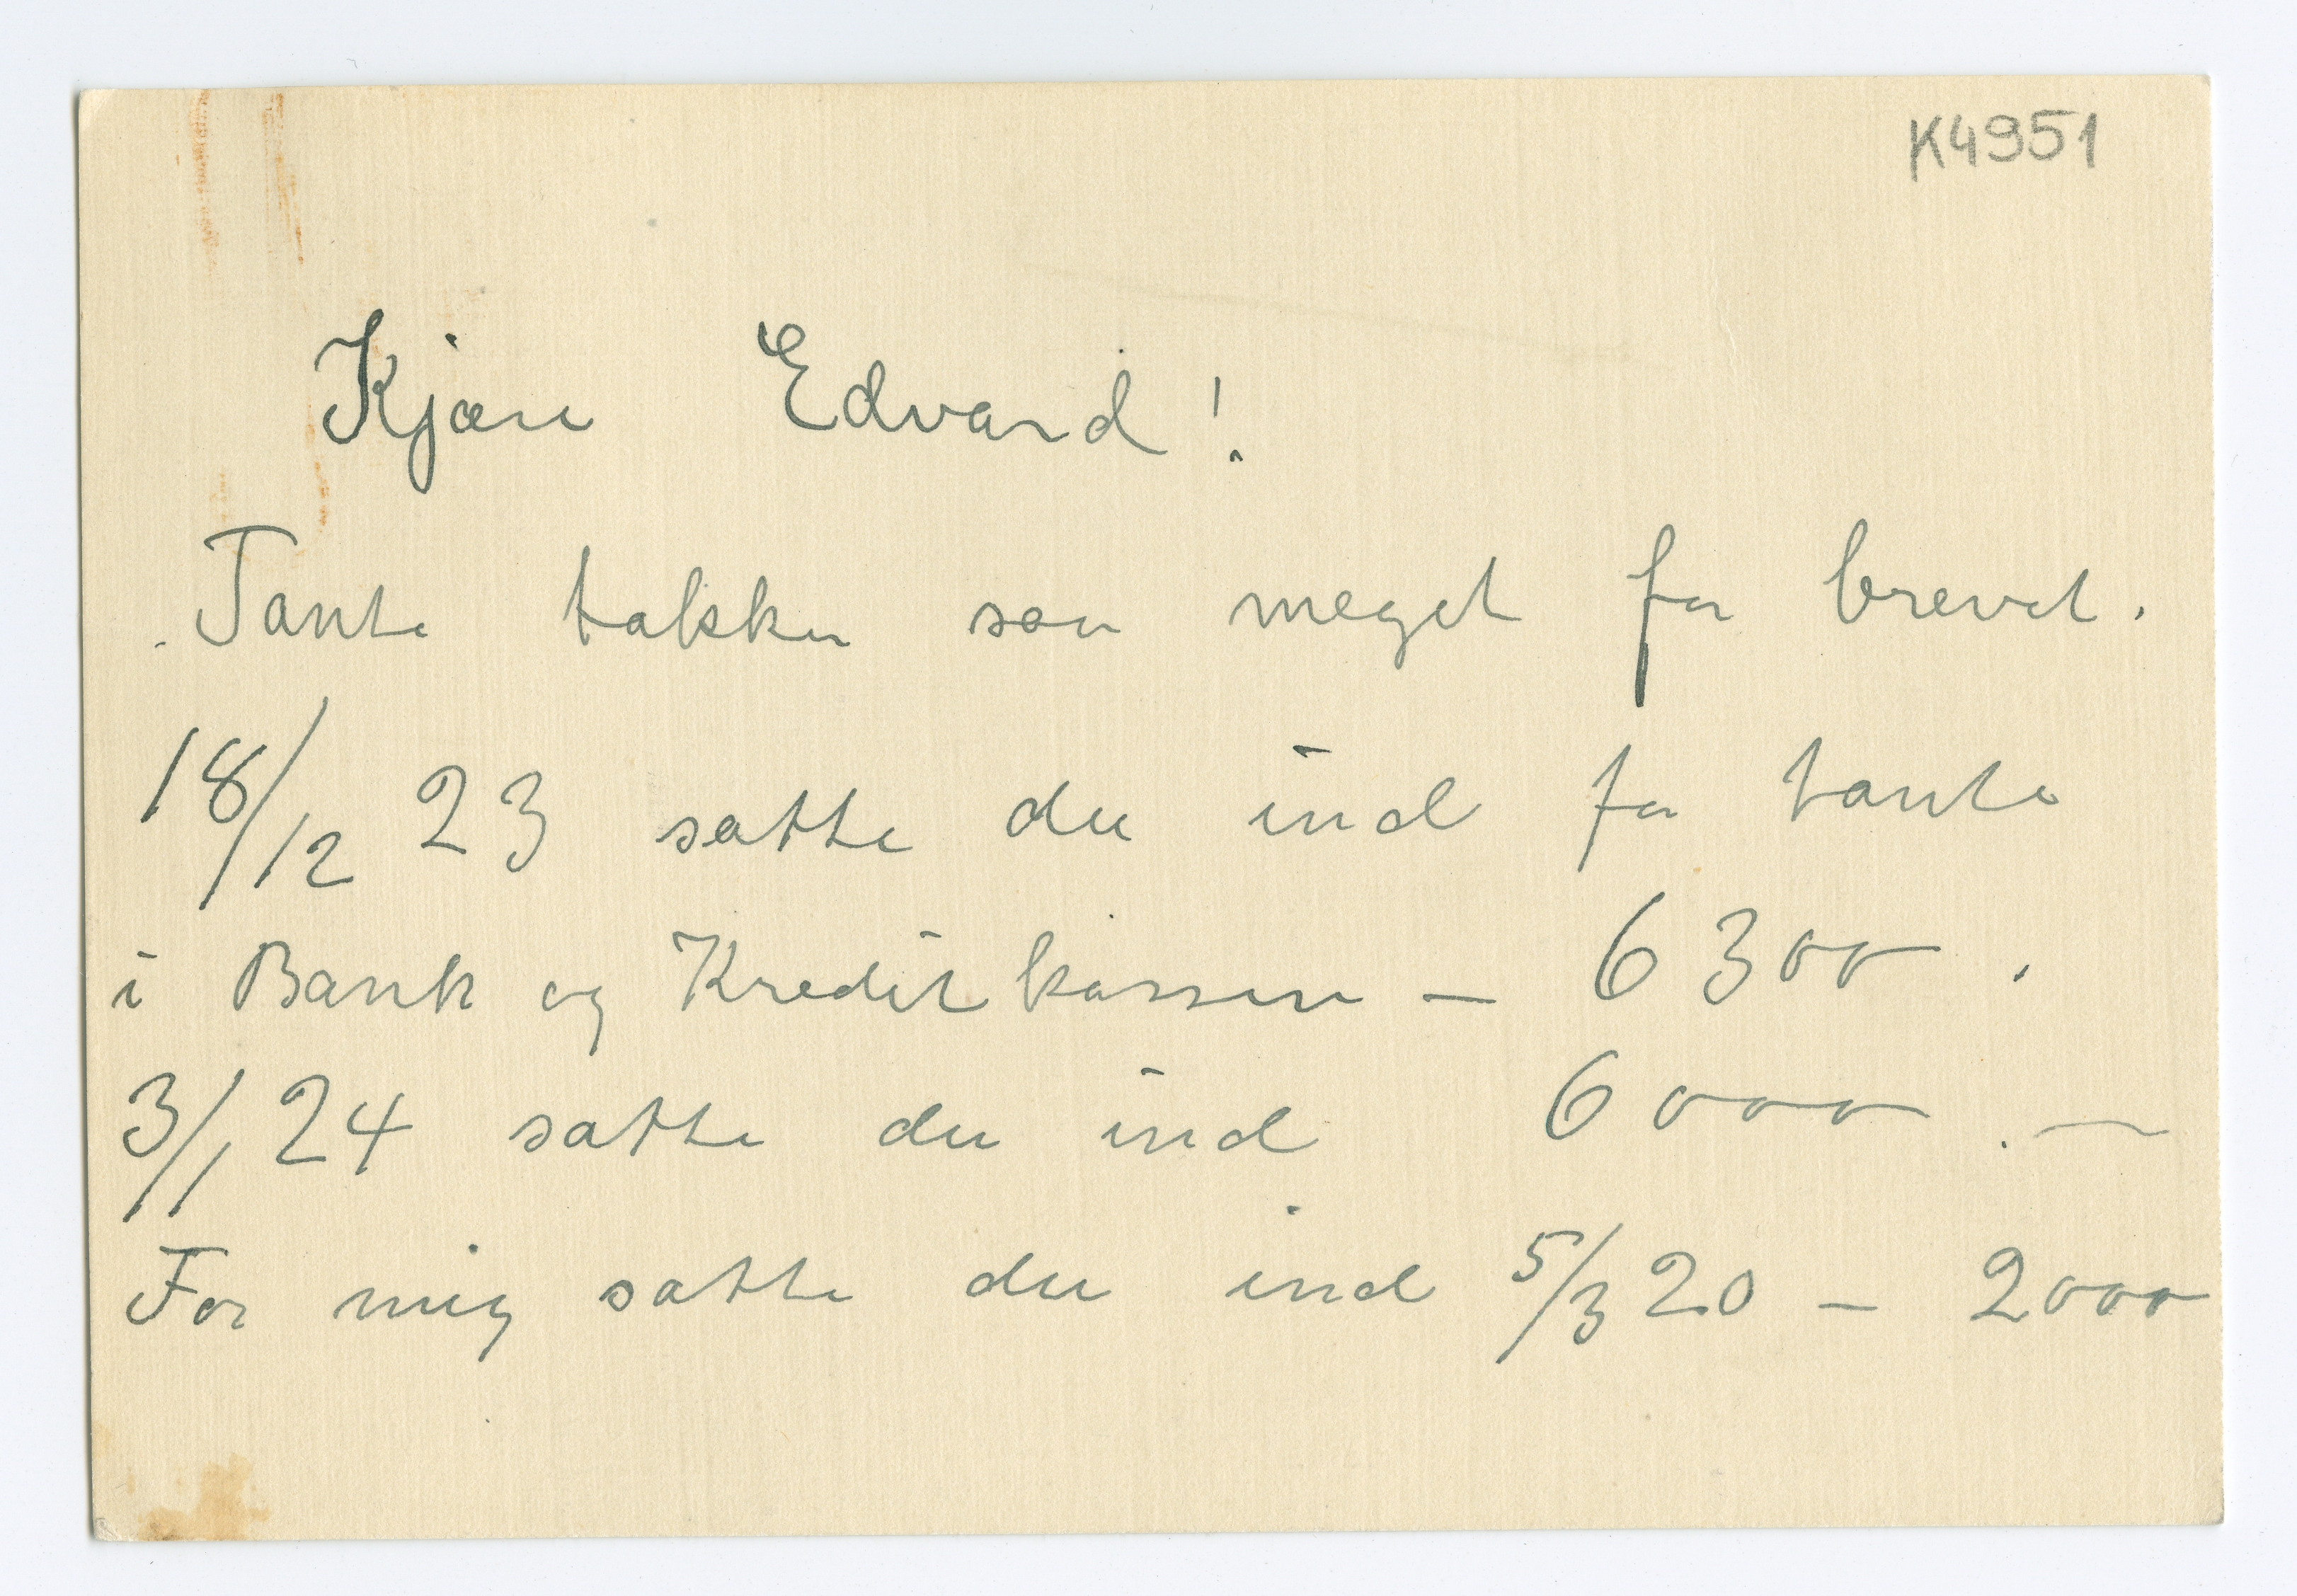 K4951
Kjære Edvard!
Tante takker saa meget for brevet.
18/12 23 satte du ind for tante
i Bank og Kreditkassen — 6300.
3/1 24 satte du ind 6000.—
For mig satte du ind 5/3 20 — 2000